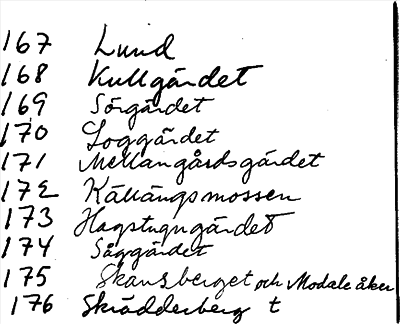 167 Lund
168 Kullgärdet
169 Sörgärdet
170 Loggärdet
171 Mellangårdsgärdet
172 Källängsmossen
173 Hagstugugärdet
174 Såggärdet
175 Skansberget och Modale åker
176 Skrädderberg t